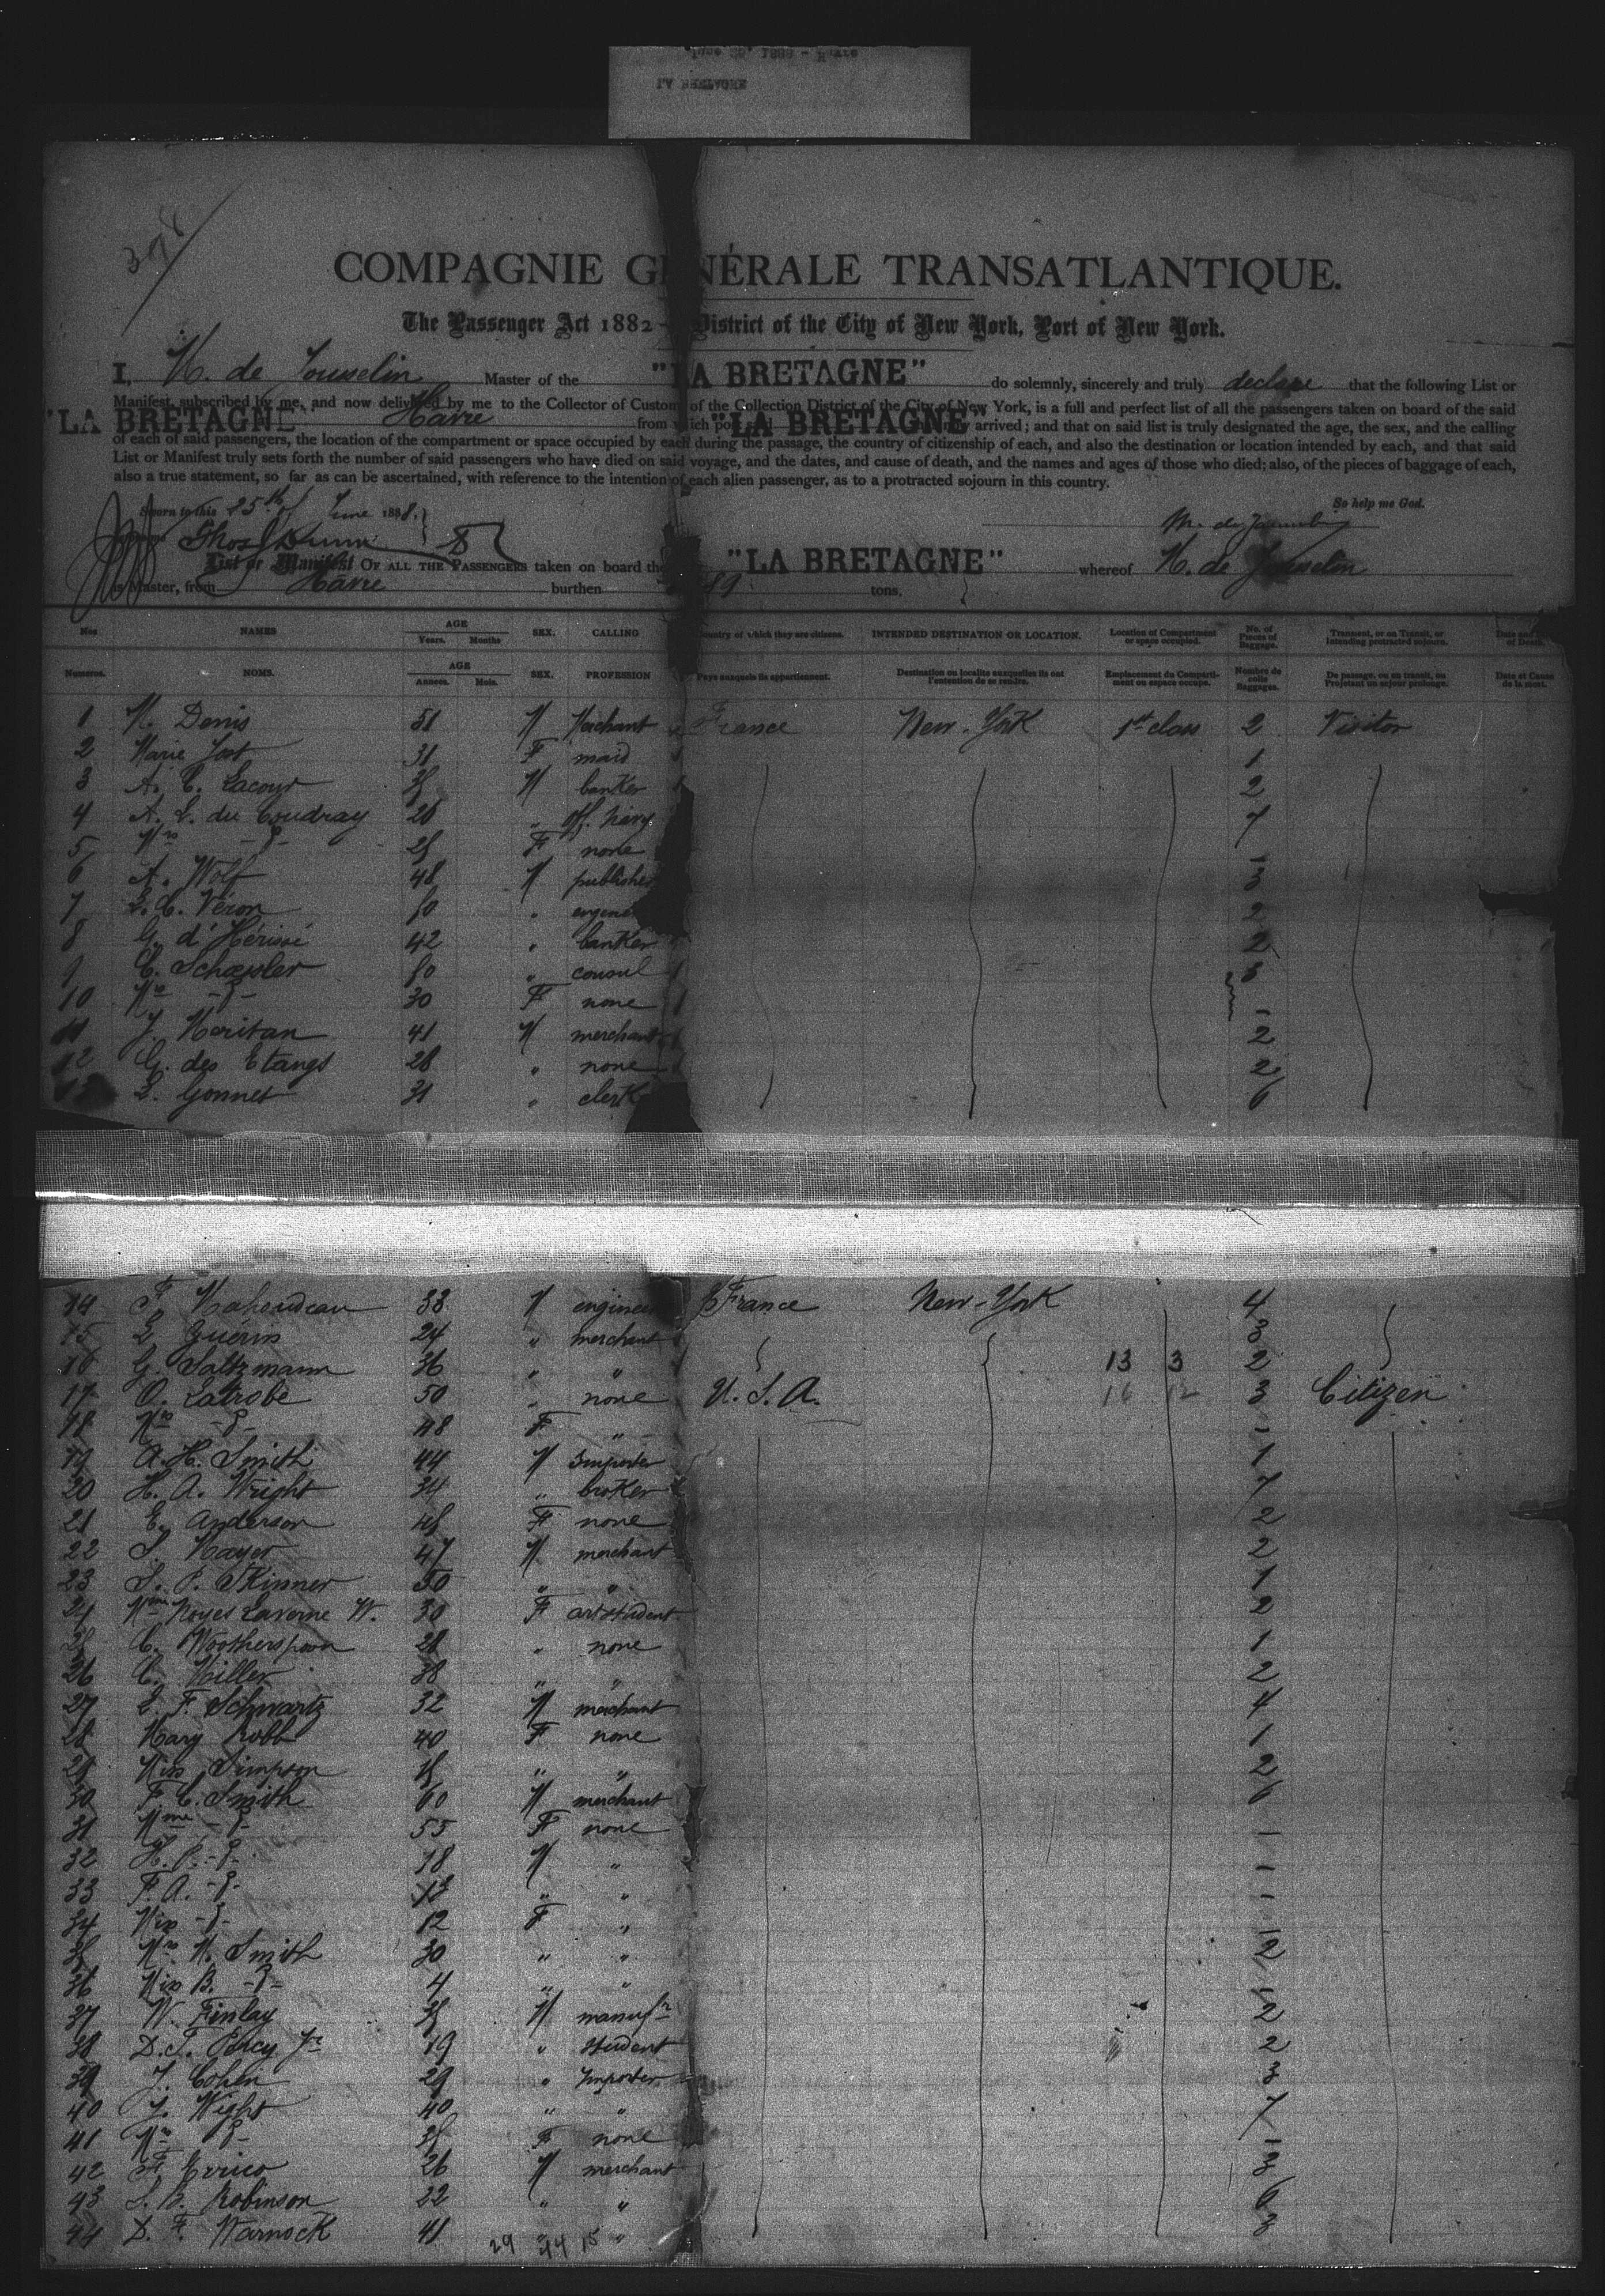 398
COMPAGNIE GÉNÉRALE TRANSATLANTIQUE.
The Passenger Act 1882 - District of the City of New York, Port of New York.
I, M. de Jousselin Master of the "LA BRETAGNE" do solemnly, sincerely and truly declare that the following List or
Manifest, subscribed by me, and now delivered by me to the Collector of Customs of the Collection District of the City of New York, is a full and perfect list of all the passengers taken on board of the said
"LA BRETAGNE" Havre from which port "LA BRETAGNE" arrived; and that on said list is truly designated the age, the sex, and the calling
of each of said passengers, the location of the compartment or space occupied by each during the passage, the country of citizenship of each, and also the destination or location intended by each, and that said
List or Manifest truly sets forth the number of said passengers who have died on said voyage, and the dates, and cause of death, and the names and ages of those who died; also, of the pieces of baggage of each,
also a true statement, so far as can be ascertained, with reference to the intention of each alien passenger, as to a protracted sojourn in this country.
Sworn to this 25th of June 1888. So help me God.
Thos Dunn
List or Manifest OF ALL THE PASSENGERS taken on board the "LA BRETAGNE" whereof M. de Jousselin
is Master, from Havre burthen 89 tons.
Nos NAMES AGE Years. Months SEX. CALLING Country of which they are citizens. INTENDED DESTINATION OR LOCATION. Location of Compartment or space occupied. No. of Pieces of Baggage. Transient, or in Transit, or intending protracted sojourn. Date and of Death.
Numeros. NOMS. AGE Annees. Mois. SEX. PROFESSION Pays auxquels ils appartiennent. Destination ou localite auxquelles ils ont l'intention de se rendre. Emplacement du Compartiment ou espace occupe. Nombre de colis Baggages. De passage, ou en transit, ou Projetant un sejour prolonge. Date et Cause de la mort.
1 M. Denis 51 M Merchant France New-York 1st class 2 Visitor
2 Marie Jost 31 F maid 1
3 A. C. Lacour 35 M banker 2
4 A. L. du Coudray 26 " off. navy 7
5 Mrs -d- 25 F none -
6 A. Wolf 48 M publisher 3
7 L. C. Véron 50 " 2
8 G. d'Hérissé 42 " banker 2
9 C. Schaessler 50 " consul 5
10 Mrs -d- 30 F none -
11 J. Meritan 41 M merchant 2
12 G. des Etangs 28 " none 2
13 L. Gonnet 31 " clerk 6
14 F. Mahoudeau 33 M engineer France New-York 4
15 L. Guérin 24 " merchant 3
16 G. Saltzmann 36 " " 13 3 2
17 O. Latrobe 50 " none U.S.A. 16 12 3 Citizen
18 Mrs -d- 48 F " -
19 A. H. Smith 44 M Importer 1
20 H. A. Wright 34 " broker 7
21 E. Anderson 45 F none 2
22 S. Mayer 47 M merchant 2
23 S. P. Skinner 50 " " 1
24 Mme Noyes Laverne W. 30 F art student 2
25 C. Wootherspoon 28 " none 1
26 C. Miller 38 " " 2
27 L. F. Schwartz 32 M merchant 4
28 Mary Robb 40 F none 1
29 Miss Simpson 15 " " 2
30 F. C. Smith 60 M merchant 6
31 Mme -d- 55 F none -
32 H. P. -d- 18 M " -
33 F. A. -d- 13 " " -
34 Miss -d- 12 F " -
35 Mrs M. Smith 30 " " 2
36 Miss B. -d- 4 " " -
37 W. Finlay 35 M manufr 2
38 D. T. Percy Jr 19 " student 2
39 J. Cohen 29 " Importer 3
40 J. Wight 40 " " 7
41 Mrs -d- 35 F none -
42 F. Errico 26 M merchant 3
43 S. B. Robinson 22 " " 6
44 D. F. Warnock 41 " " 3
29 44 15